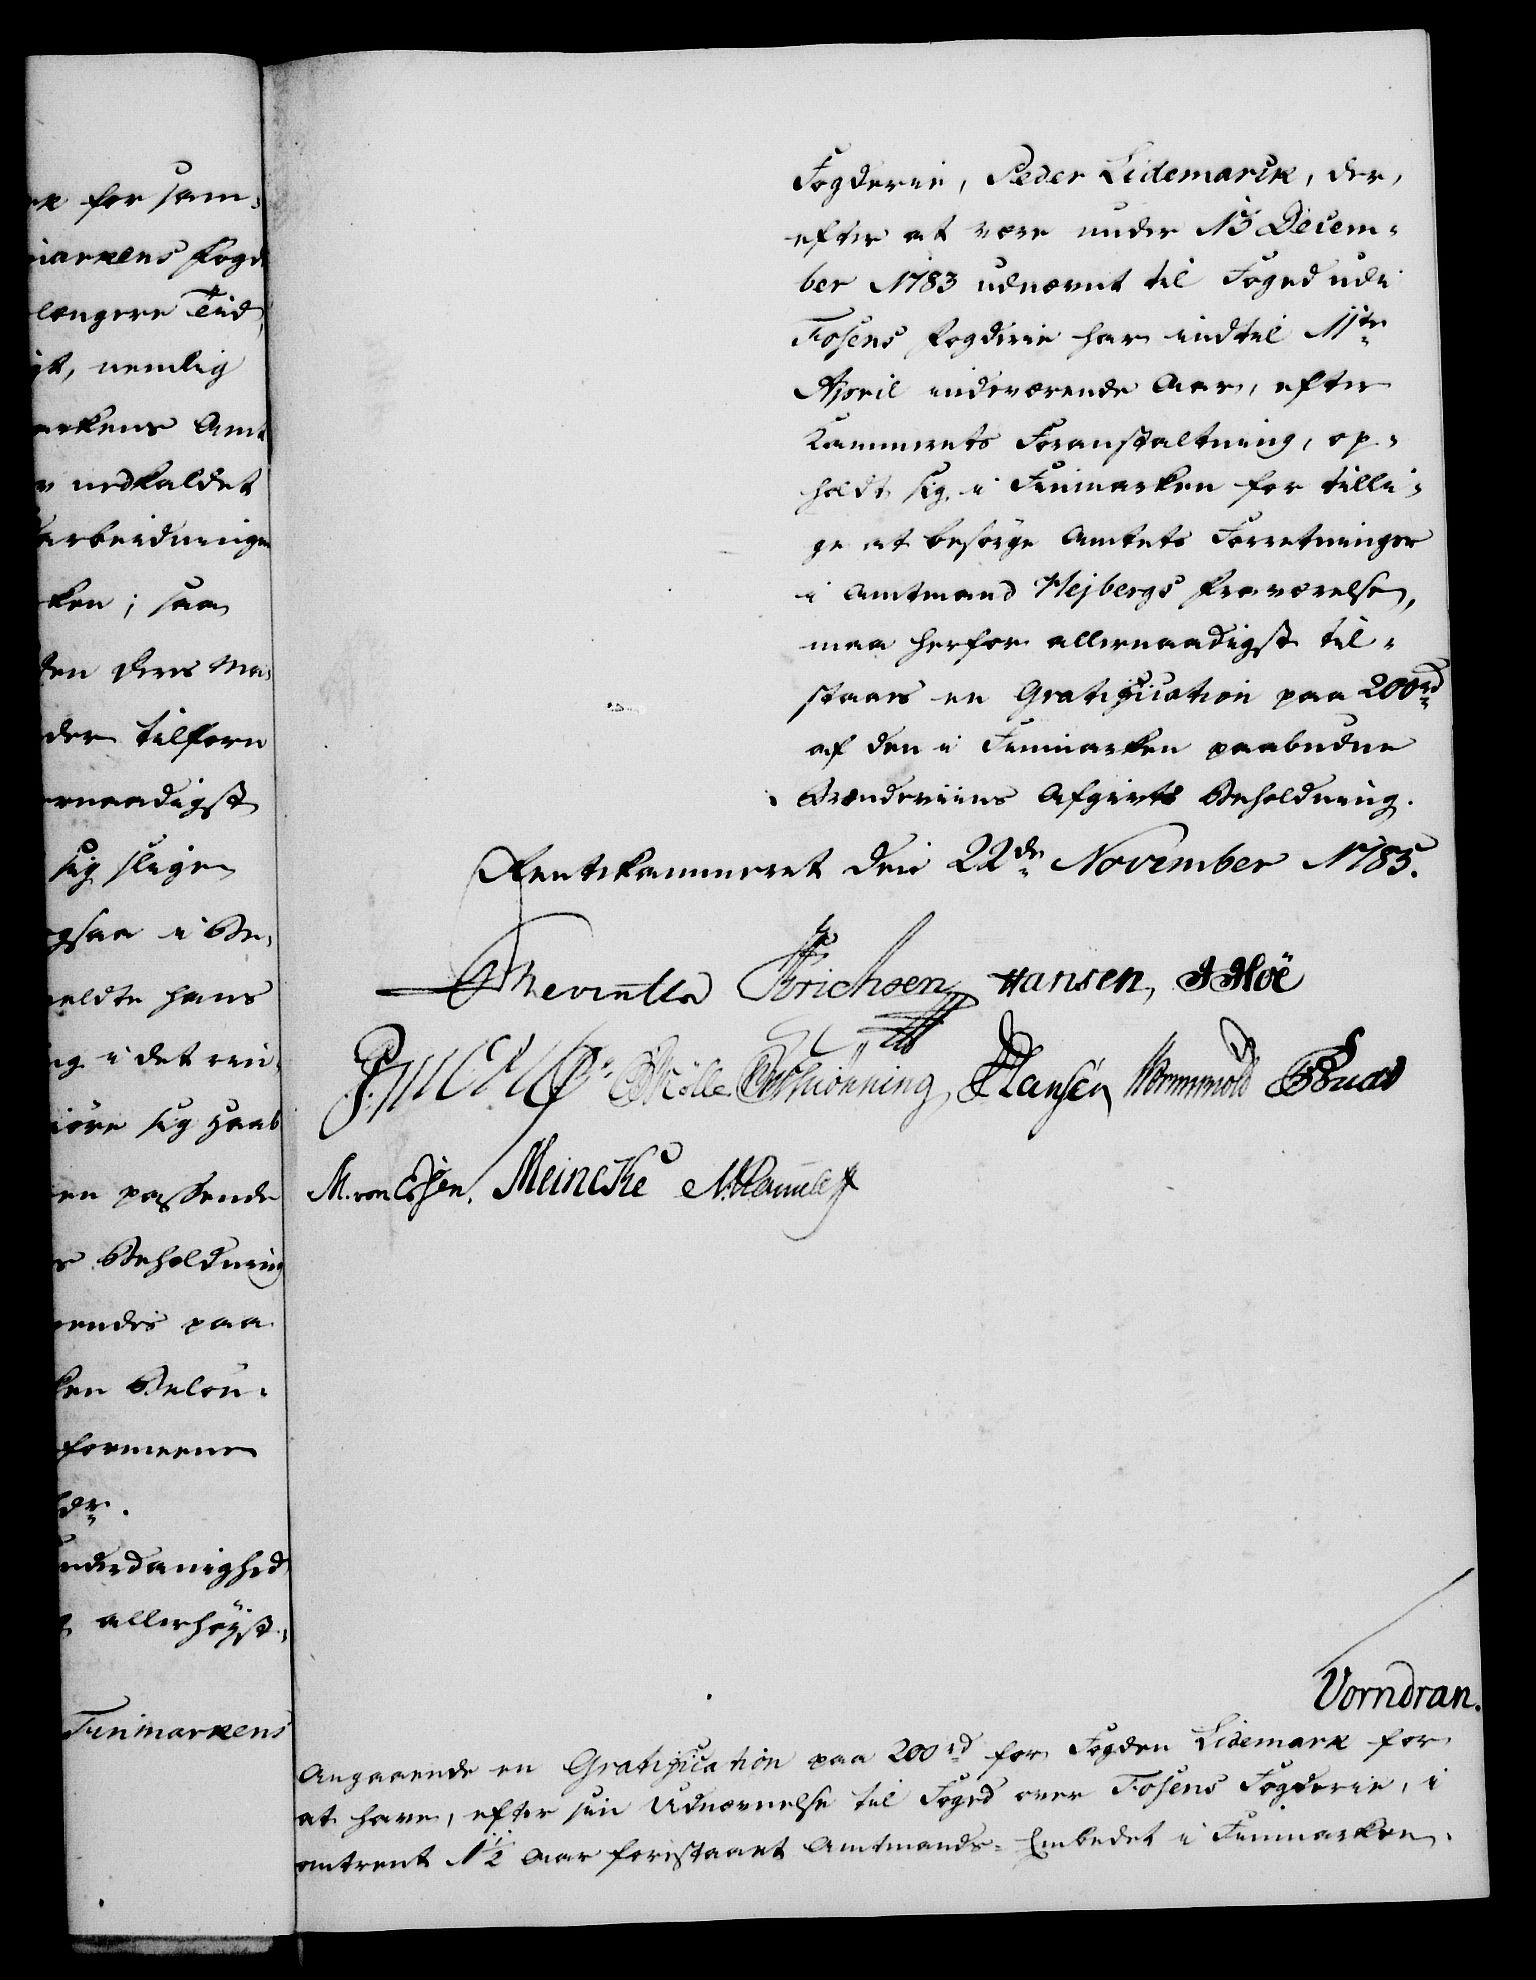 rk for sam-
marxens Fogd
længere Tid
gt, nemlig
arkens Amt
nedkaldet
arbeidninger
ken; saa
den Deres Ma-
der tilforn
ernaadigst
sig slige
ogsaa i Be-
meldte hans
ng i det min-
giøre sig Haab
en passende
s Beholdning
endes paa
ken Beløn-
formeene
underdanighed
allerhøyst-
Finmarkens
Fogderie, Peder Lidemarck, der,
efter at være under 15 Decem-
ber 1783 udnævnt til Foged udi
Fosens Fogderie har indtil 11te
April indeværende Aar, efter
Kammerets Foranstaltning, op-
holdt sig i Finmarken for tilli-
ge at besørge Amtets Forretninger
i Amtmand Hejbergs fraværelse,
maa herfor allernaadigst til-
staaes en Gratification paa 200rd
af den i Finmarken paabudne
Brænderiins Afgivts Beholdning.
Rentekammeret den 22de November 1785.
Erichsen Hansen, Höe
Mölle Schiönning Hansen Wormwold
M. von Essen. Meincke
Vorndran.
Angaaende en Gratification paa 200rd for Fogden Lidemark for
at have, efter sin Udnævnelse til Foged over Fosens Fogderie, i
omtrent 1 1/2 Aar forestaaet Amtmands-Embedet i Finmarken.